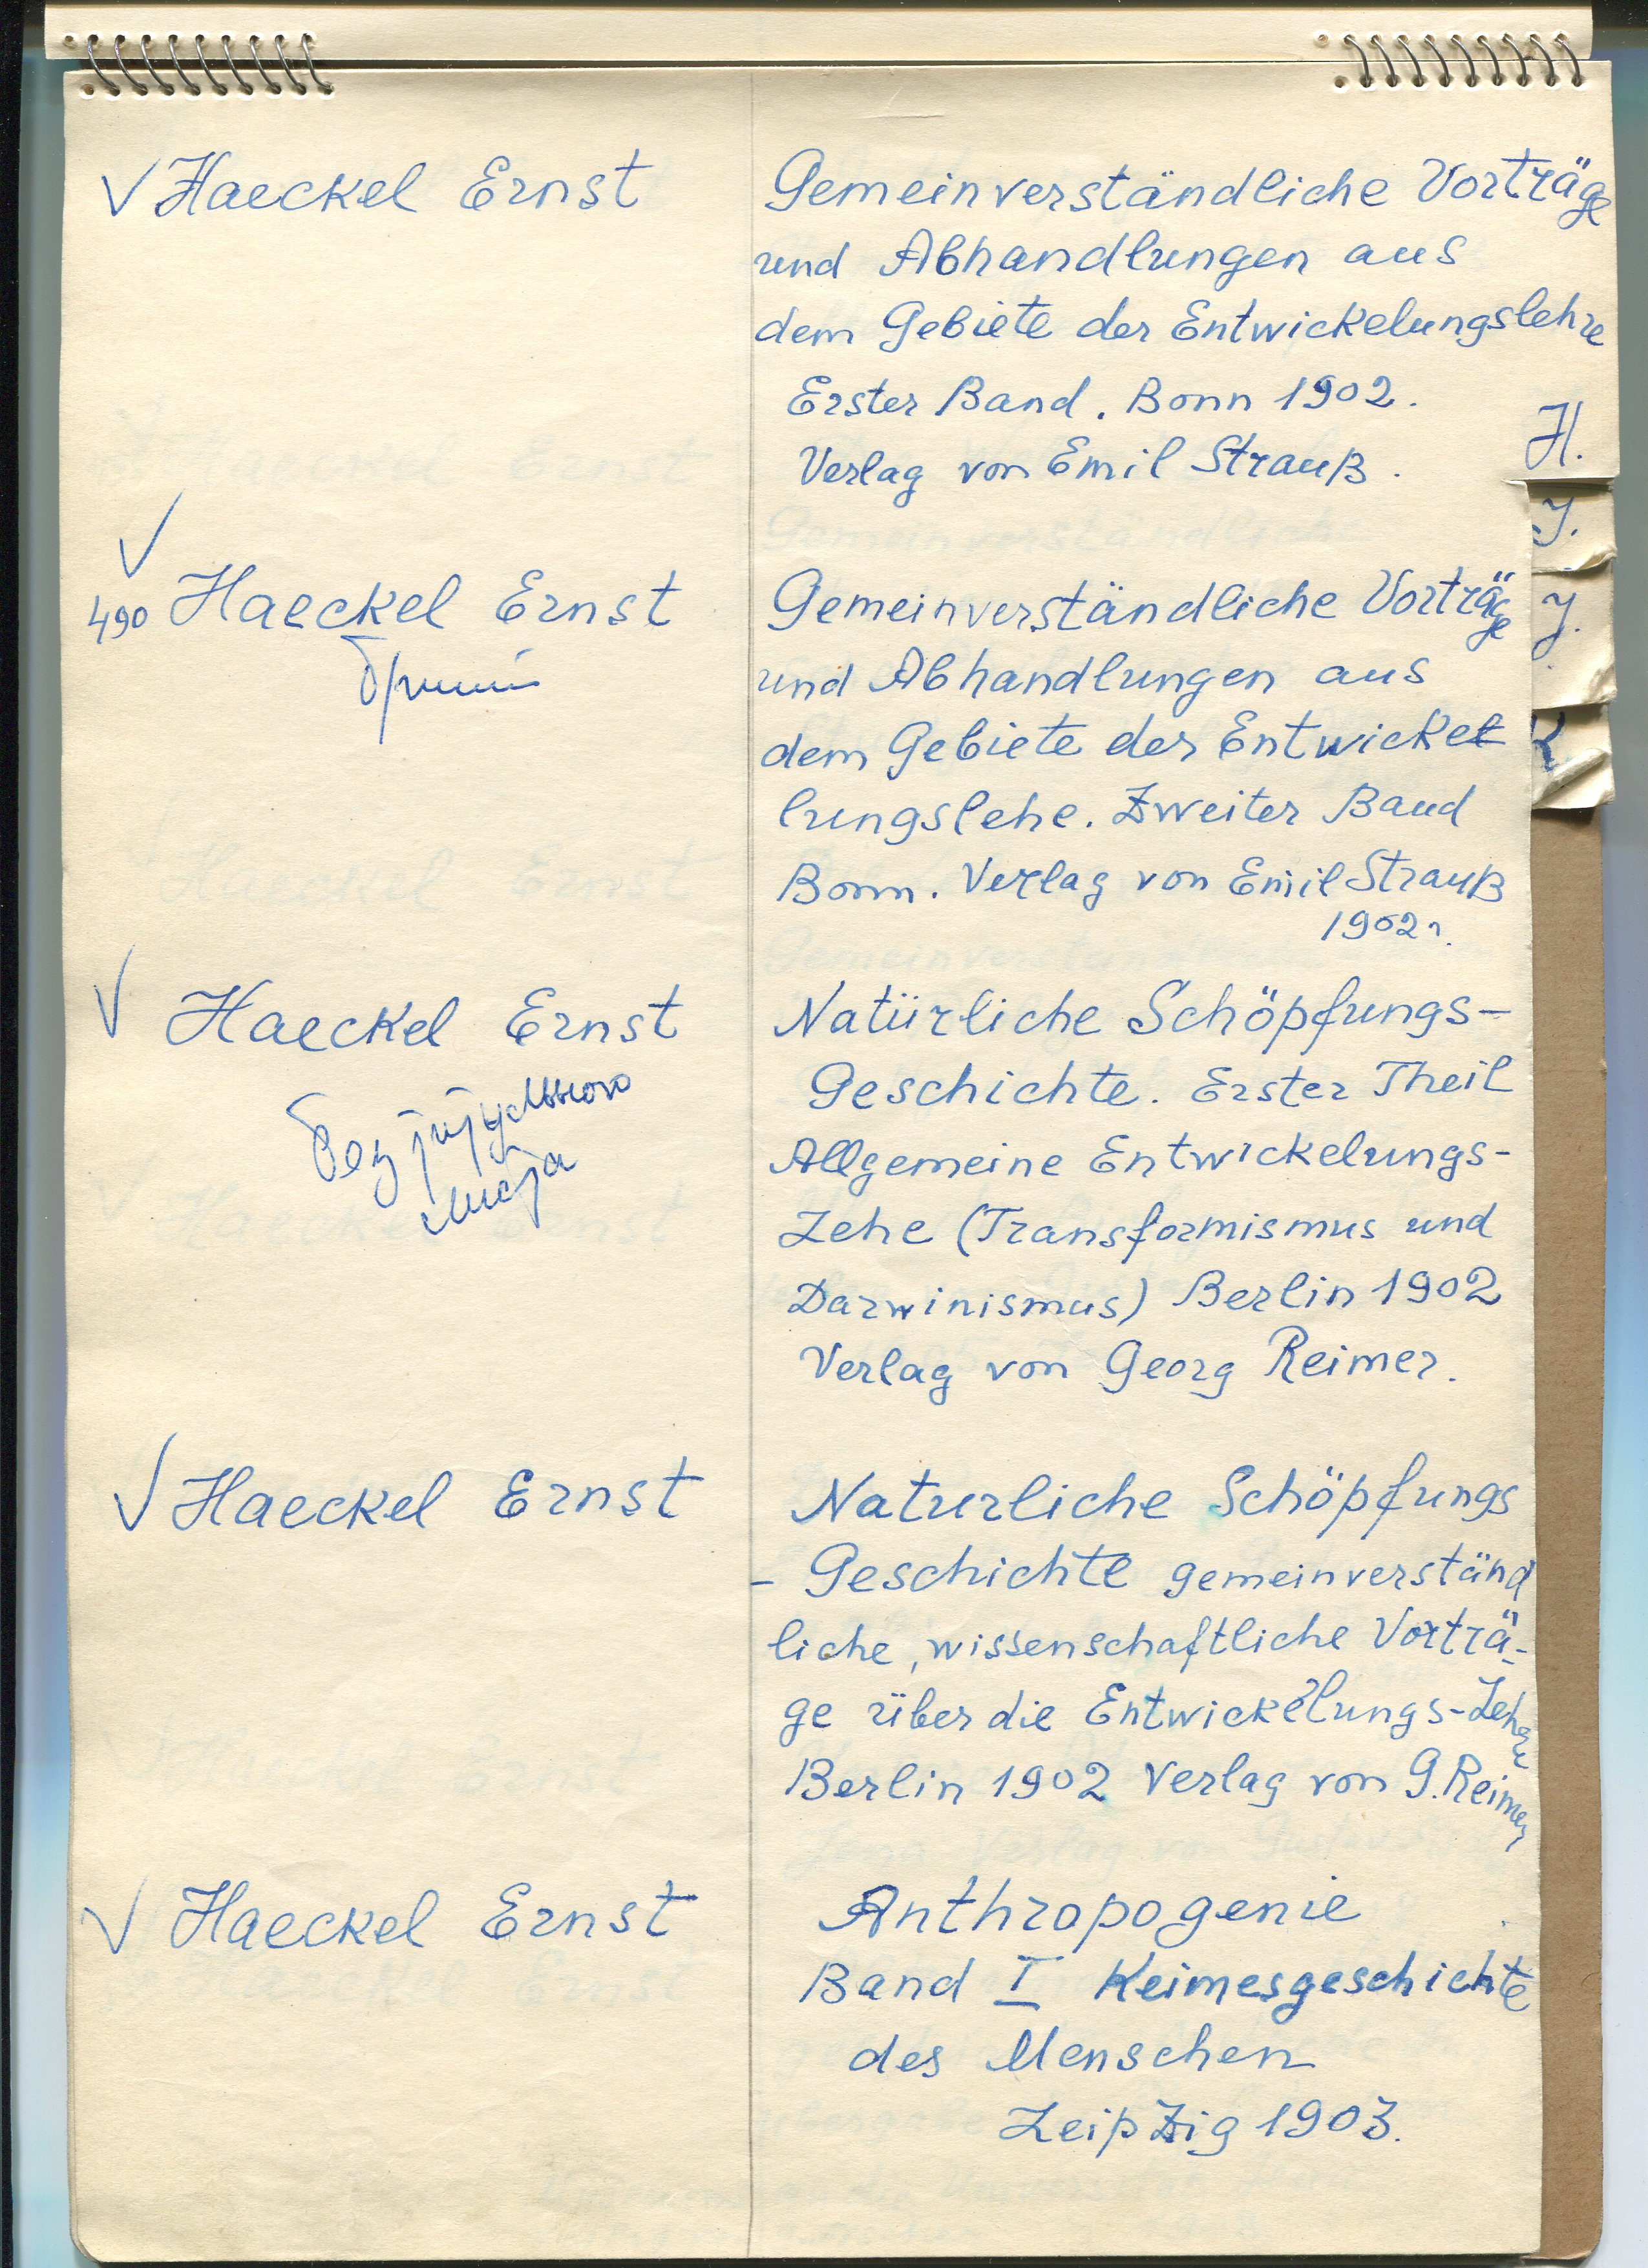 √ Haeckel Ernst
Gemeinverständliche Vorträge
und Abhandlungen aus
dem Gebiete der Entwickelungslehre
Erster Band. Bonn 1902.
Verlag von Emil Strauß.
H.
J.
J.
K
√
490 Haeckel Ernst
Gemeinverständliche Vorträge
und Abhandlungen aus
dem Gebiete der Entwickel
lungslehe. Zweiter Band
Bonn. Verlag von Emil Strauß
1902 г.
√ Haeckel Ernst
без титульного
листа
Natürliche Schöpfungs-
Geschichte. Erster Theil
Allgemeine Entwickelungs-
Lehe (Transformismus und
Darwinismus) Berlin 1902
Verlag von Georg Reimer.
√ Haeckel Ernst
Naturliche Schöpfungs
- Geschichte gemeinverständ
liche, wissenschaftliche Vorträ-
ge über die Entwickelungs-Lehere
Berlin 1902 Verlag von G. Reimer
√ Haeckel Ernst
Anthropogenie
Band I Keimesgeschichte
des Menschen
Leipzig 1903.